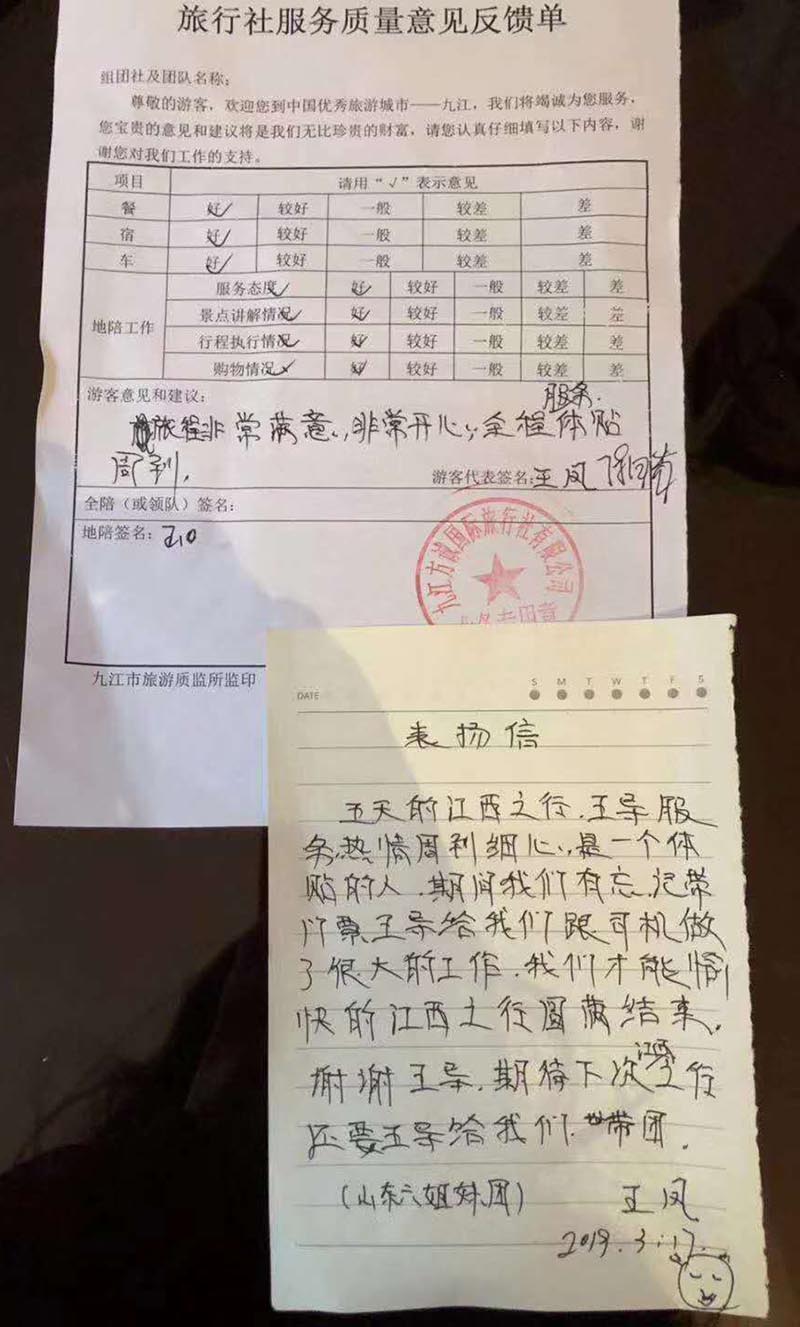 旅行社服务质量意见反馈单
组团社及团队名称：
尊敬的游客，欢迎您到中国优秀旅游城市——九江，我们将竭诚为您服务，
您宝贵的意见和建议将是我们无比珍贵的财富，请您认真仔细填写以下内容，谢
谢您对我们工作的支持。
项目 请用“√”表示意见
餐 好✓ 较好 一般 较差 差
宿 好✓ 较好 一般 较差 差
车 好✓ 较好 一般 较差 差
地陪工作
服务态度✓ 好✓ 较好 一般 较差 差
景点讲解情况✓ 好✓ 较好 一般 较差 差
行程执行情况✓ 好✓ 较好 一般 较差 差
购物情况✓ 好✓ 较好 一般 较差 差
游客意见和建议：
服务.
旅程非常满意，非常开心，全程体贴
周到，
游客代表签名：王凤
全陪（或领队）签名：
地陪签名：
九江方诚国际旅行社有限公司
业务专用章
九江市旅游质监所监印
DATE S M T W T F S
表扬信
五天的江西之行，王导服
务热情周到细心，是一个体
贴的人，期间我们有忘记带
门票王导给我们跟司机做
了很大的工作，我们才能愉
快的江西之行圆满结束。
江西
谢谢王导，期待下次之行
还要王导给我们带团。
（山东六姐妹团） 王凤
2019.3.17.